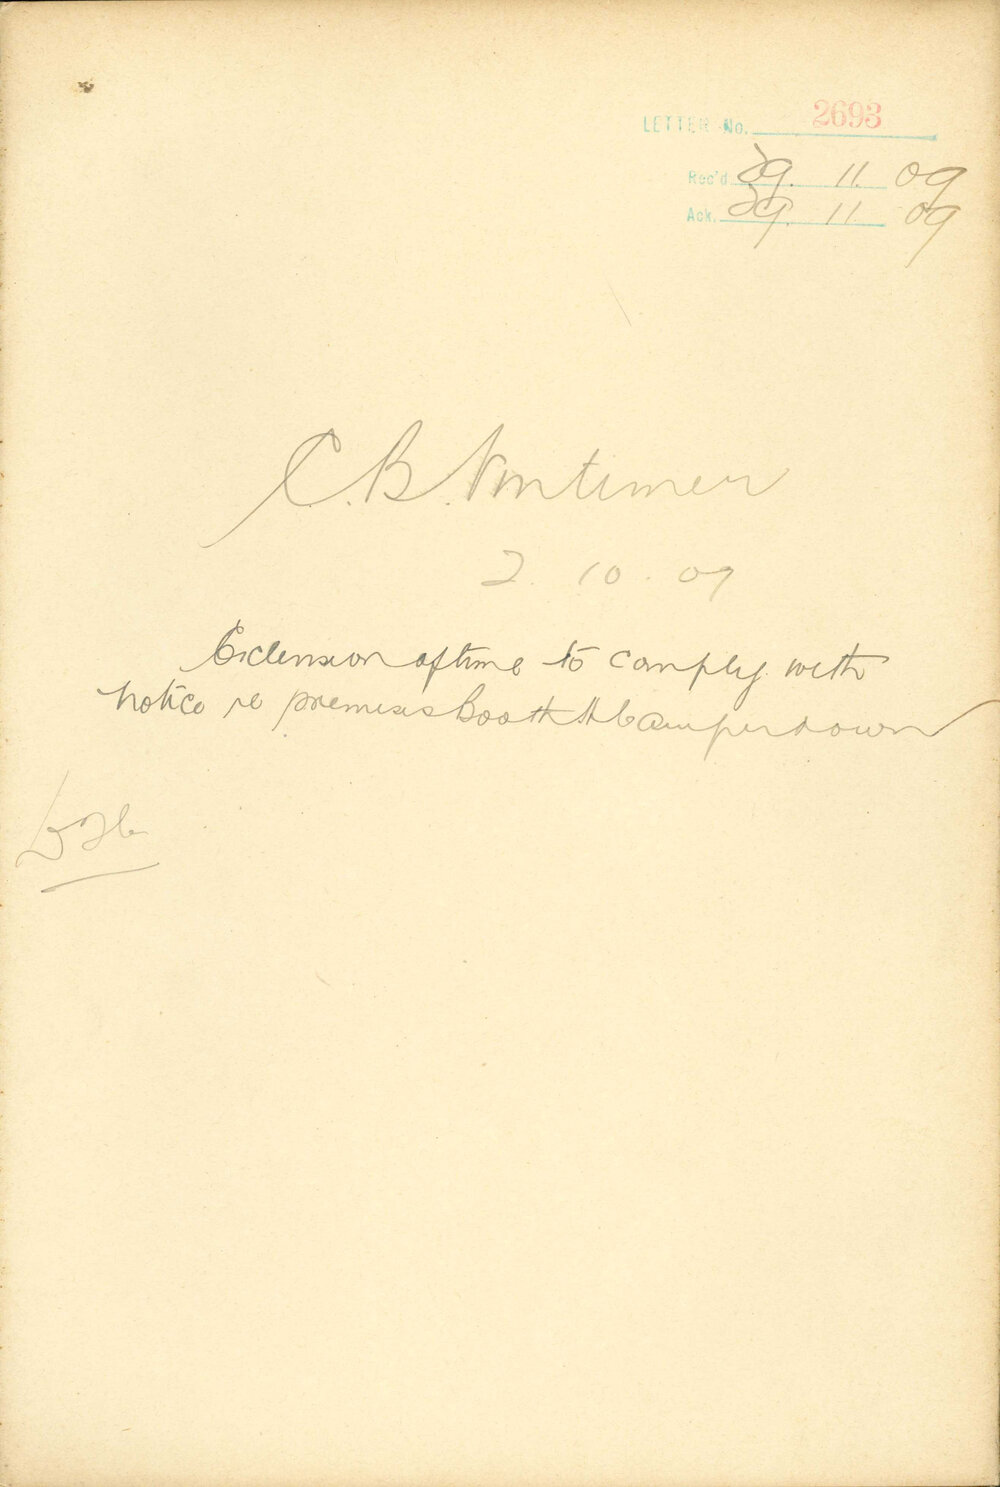 LETTER No. 2693
Rec'd 29. 11. 09
Ack. 29. 11 09
C. B. Mortimer
2. 10. 09
Extension of time to comply with
notice re premises Booth St Camperdown